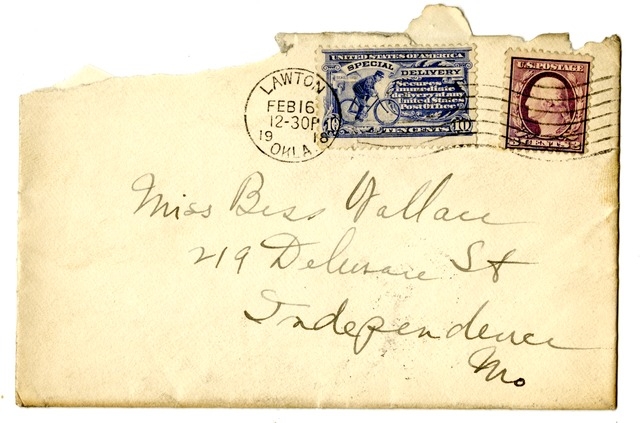 LAWTON
FEB 16
12-30P
19 18
OKLA.
UNITED STATES OF AMERICA
SPECIAL DELIVERY
Secures
immediate
delivery at any
United States
Post Office
10 TEN CENTS 10
U.S. POSTAGE
Miss Bess Wallace
219 Delaware St
Independence
Mo